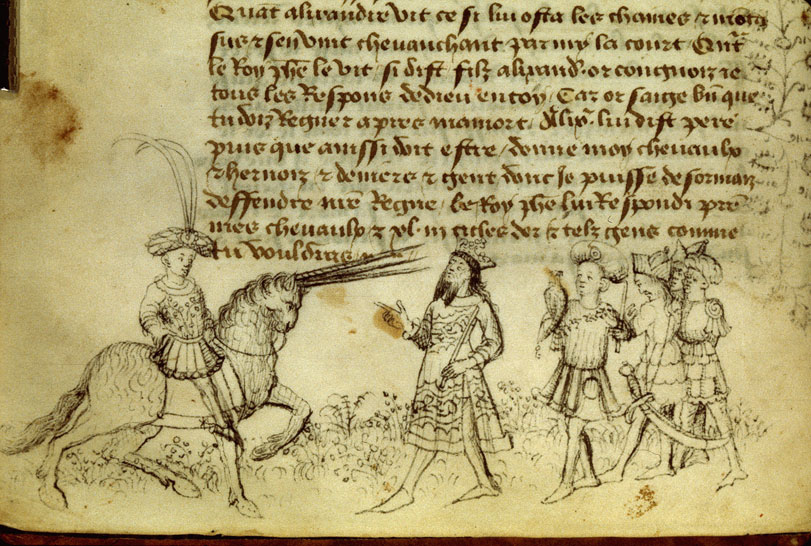 Quāt alixandre vit ce si lui osta les chaines ⁊ monta
sus ⁊ sen vint chevauchant parmy la court Quāt
le Roy phē le vit si dist filz alixand̕ or congnois ie
tous les Respons de dieu en toy Car or saige bn̄ que
tu doiz Regner apres ma mort Alix̕ lui dist pere
puis que ainssi doit estre donne moy chevaulx
⁊ hernoiz ⁊ deniers ⁊ gent dont Je puisse desormaiz
deffendre nrē Regne le Roy phē lui Respondi pren
mes chevaulx ⁊ xl m cicles dor ⁊ telz gens comme
tu vouldras